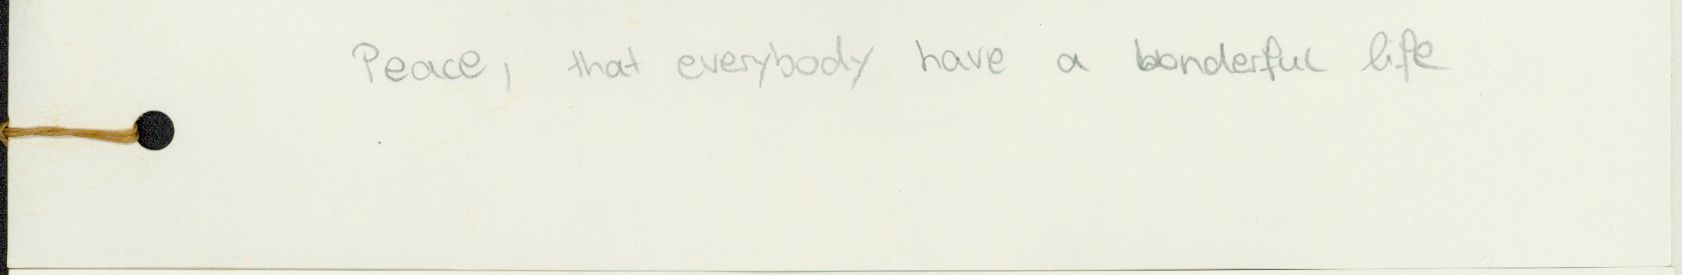 Peace, that everybody have a wonderful life